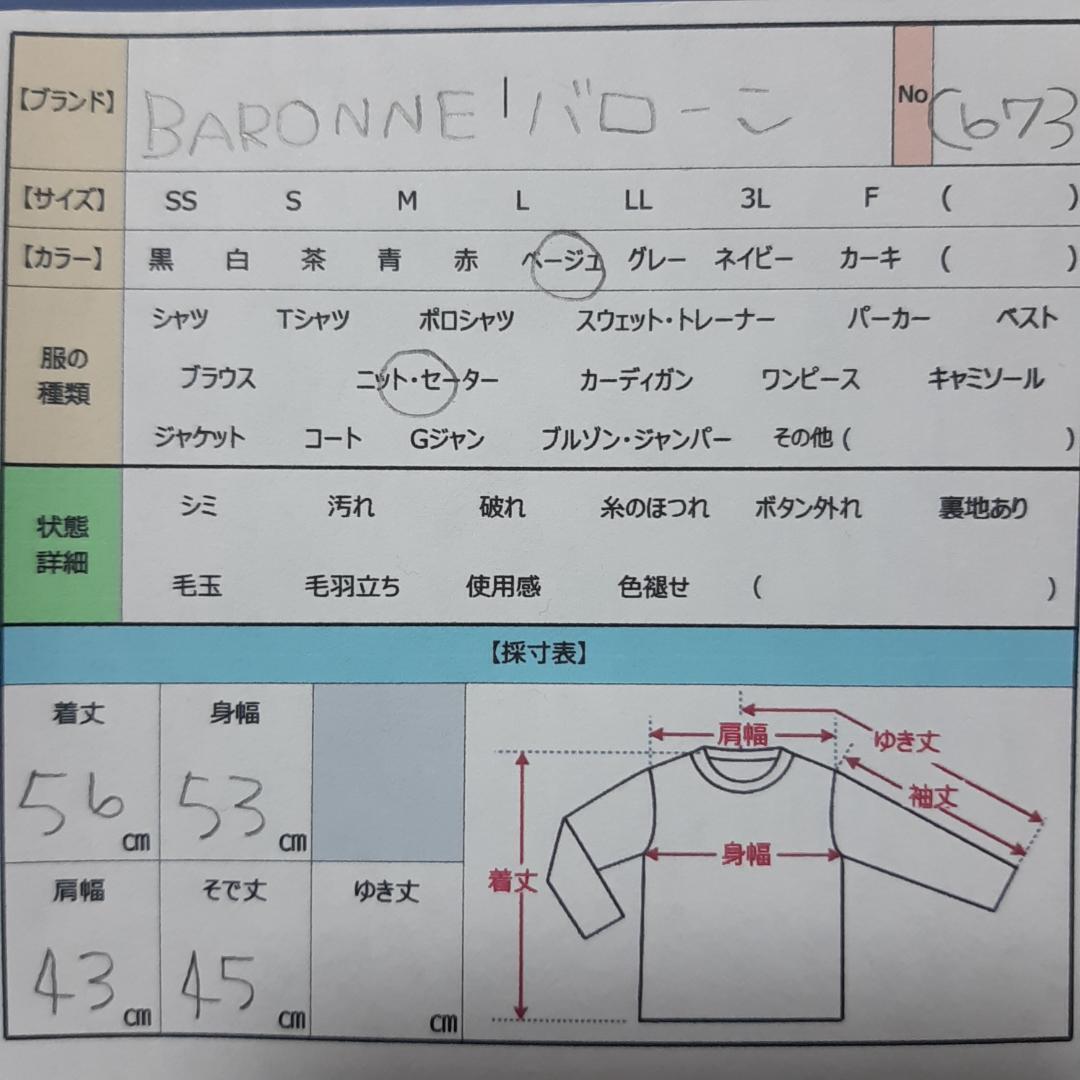 【ブランド】 BARONNE バローこ No C673
【サイズ】 SS S M L LL 3L F ( )
【カラー】 黒 白 茶 青 赤 ベージュ グレー ネイビー カーキ ( )
服の種類
シャツ Tシャツ ポロシャツ スウェット・トレーナー パーカー ベスト
ブラウス ニット・セーター カーディガン ワンピース キャミソール
ジャケット コート Gジャン ブルゾン・ジャンパー その他 ( )
状態詳細
シミ 汚れ 破れ 糸のほつれ ボタン外れ 裏地あり
毛玉 毛羽立ち 使用感 色褪せ ( )
【採寸表】
着丈 身幅
56cm 53cm
肩幅 そで丈 ゆき丈
43cm 45cm cm
肩幅 ゆき丈
袖丈
身幅
着丈